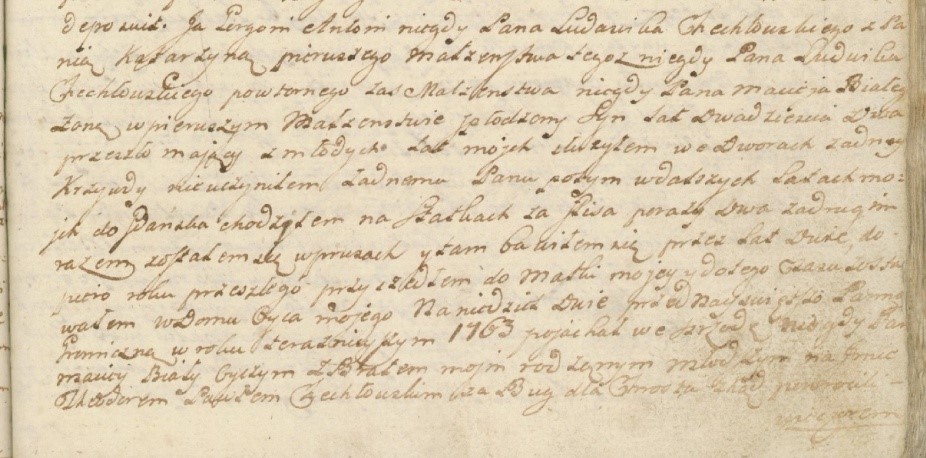 deposuit. Ja Antoni niegdy Pana Ludwika Czechowskiego z Pa
nią Katarzyną pierwszego Małzenstwa tegoz niegdy Pana Ludwika
Czechowskiego powtornego zas Małzenstwa niegdy Pana Maucija Białey
zoną w pierwszym Małzenstwie spłodzony Syn Lat Dwadziescia Dwa
przeszło maiący z młodych Lat moich słuzyłem we Dworach zadney
Krzywdy nieuczyniłem zadnemu Panu potym w dalszych Latach mo:
jch do Gdańska chodzyłem na Statkach za Flisa porazy Dwa za drugim
razem zostałem się w prusach y tam bawiłem się przez Lat Dwie, do-
piero roku przeszłego przyszedłem do Matki mojey y do tego Czasu zosta
wałem w Domu Oyca mojego Na niedziel Dwie przed Nayswięt: Panną
Gromniczną w roku teraznieyszym 1763 pojachał we srzodę niegdy Pan
Maucij Biały Oyczym z Bratem moim rodzonym młodszym na Imie
Theodorem Czechowskim za Bug dla